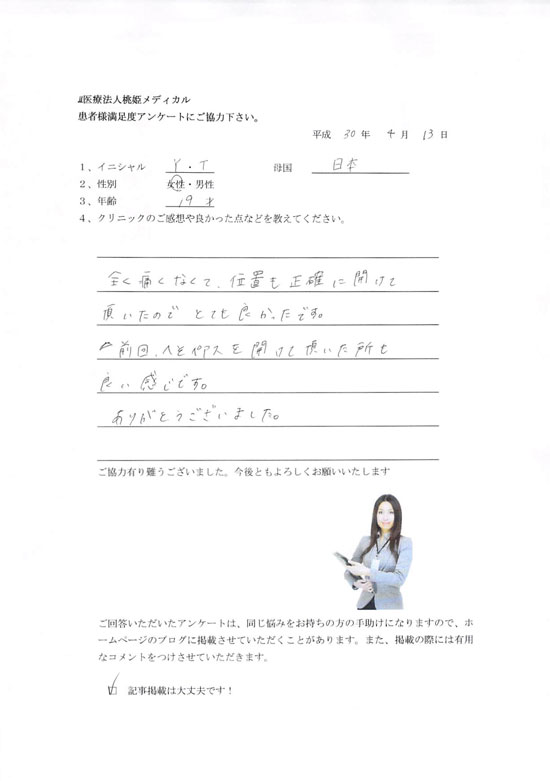 医療法人桃姫メディカル
患者様満足度アンケートにご協力下さい。
平成 30 年 4 月 13 日
1、イニシャル Y・T 母国 日本
2、性別 女性・男性
3、年齢 19才
4、クリニックのご感想や良かった点などを教えてください。
全く痛くなくて、位置も正確に開けて
頂いたので とても良かったです。
前回、へそピアスを開けて頂いた所も
良い感じです。
ありがとうございました。
ご協力有り難うございました。今後ともよろしくお願いいたします
ご回答いただいたアンケートは、同じ悩みをお持ちの方の手助けになりますので、ホ
ームページのブログに掲載させていただくことがあります。また、掲載の際には有用
なコメントをつけさせていただきます。
記事掲載は大丈夫です！